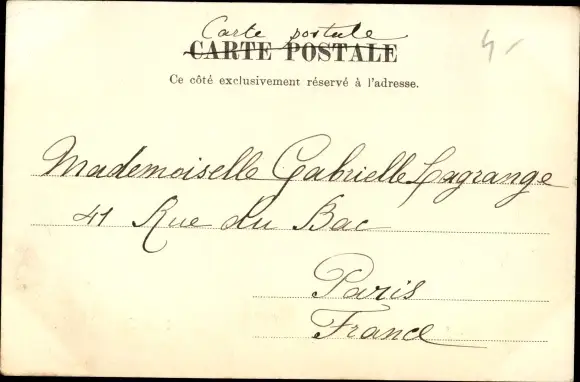 Carte postale
CARTE POSTALE
Ce côté exclusivement réservé à l'adresse.
Mademoiselle Gabrielle Lagrange
41 Rue du Bac
Paris
France